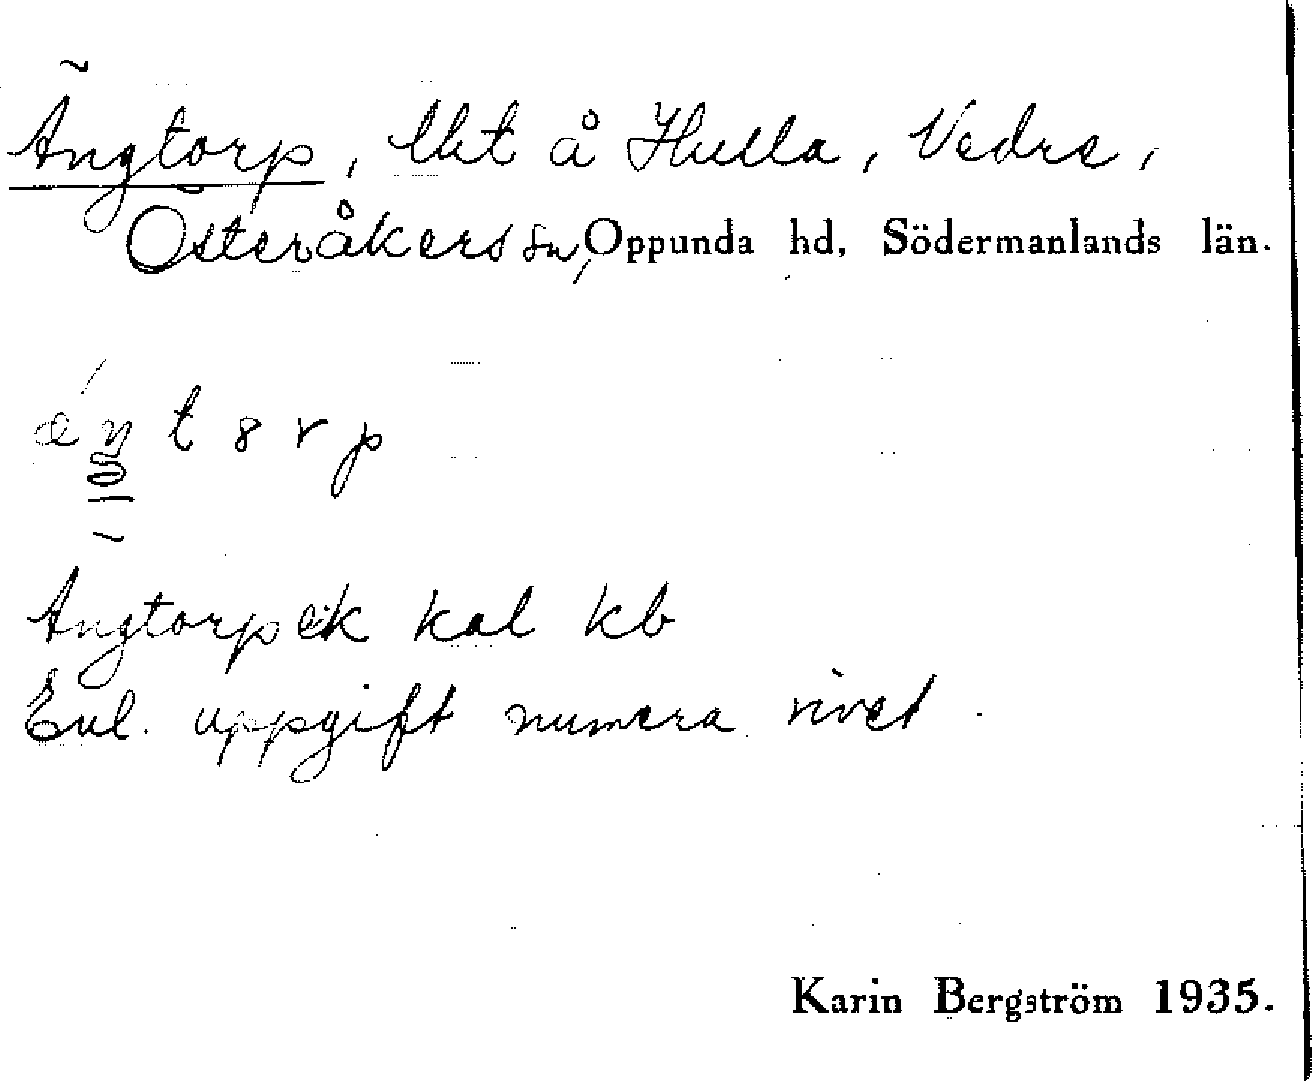 Ängtorp, lht å Hulla, Vedra,
Österåkers sn, Oppunda hd, Södermanlands län.
Ängtorp ek kal kb
Enl. uppgift numera rivet.
Karin Bergström 1935.